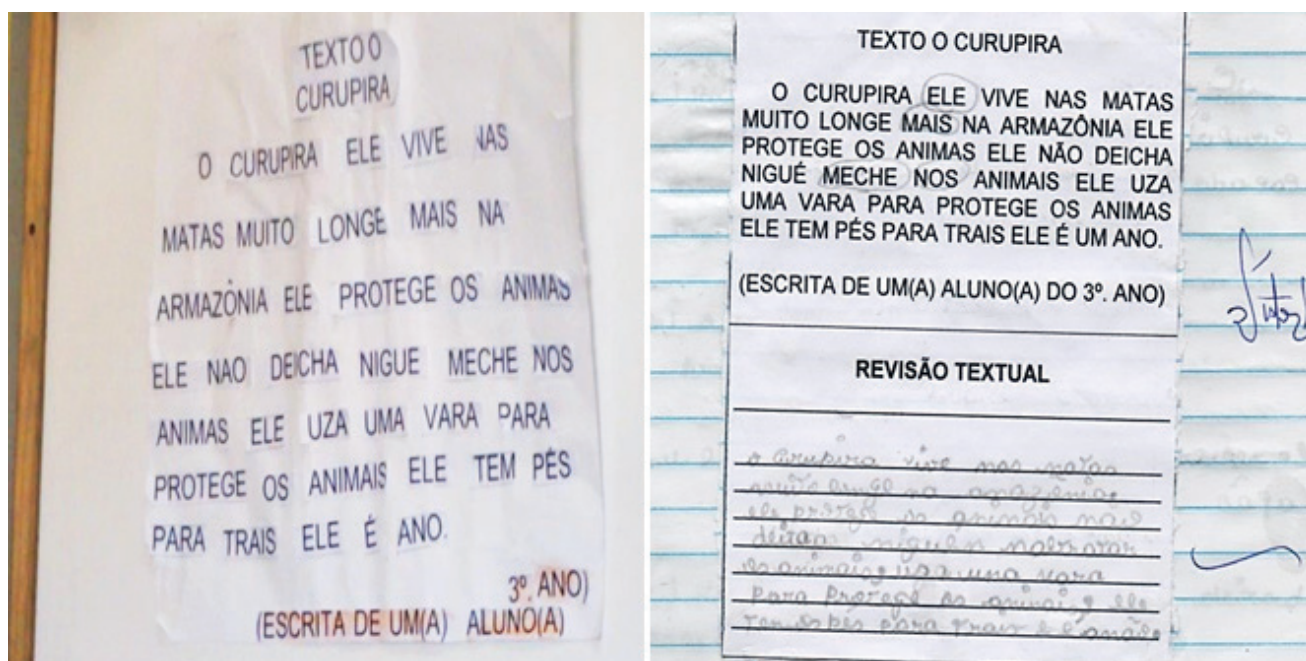 TEXTO O
CURUPIRA
O CURUPIRA ELE VIVE NAS
MATAS MUITO LONGE MAIS NA
ARMAZÔNIA ELE PROTEGE OS ANIMAS
ELE NAO DEICHA NIGUE MECHE NOS
ANIMAS ELE UZA UMA VARA PARA
PROTEGE OS ANIMAIS ELE TEM PÉS
PARA TRAIS ELE É ANO.
3º. ANO)
(ESCRITA DE UM(A) ALUNO(A)
TEXTO O CURUPIRA
O CURUPIRA ELE VIVE NAS MATAS
MUITO LONGE MAIS NA ARMAZÔNIA ELE
PROTEGE OS ANIMAS ELE NÃO DEICHA
NIGUÉ MECHE NOS ANIMAIS ELE UZA
UMA VARA PARA PROTEGE OS ANIMAS
ELE TEM PÉS PARA TRAIS ELE É UM ANO.
(ESCRITA DE UM(A) ALUNO(A) DO 3º. ANO)
REVISÃO TEXTUAL
o Curupira vive nas matas
muito longe na
ele protege os animais não
os animais uza uma vara
para protege os animais ele
tem os pés para trais e é anão